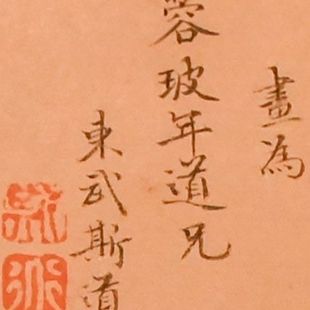 畫為
蓉玻年道兄
東武斯道